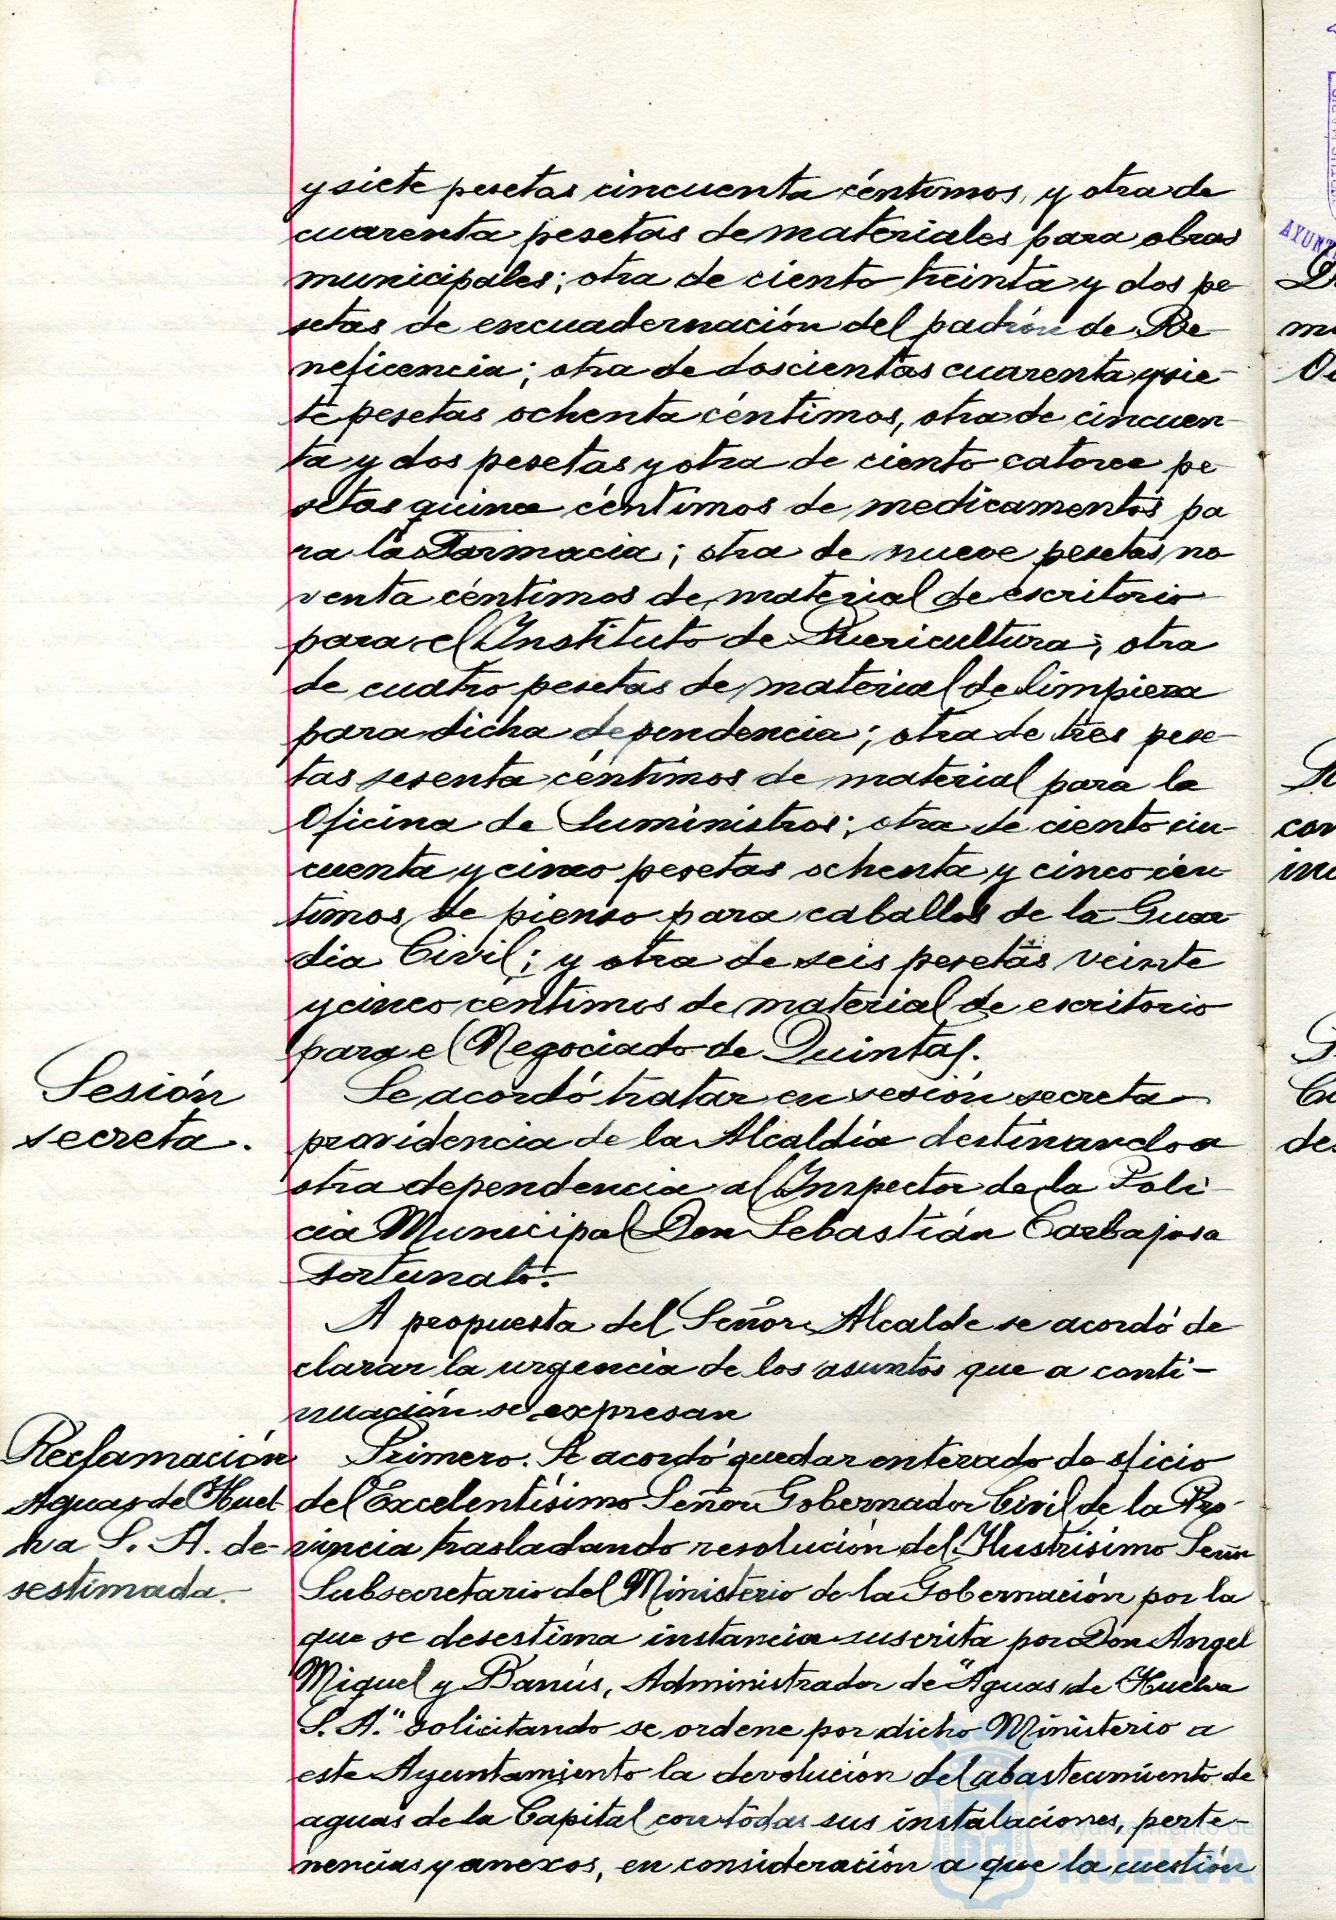 y siete pesetas cincuenta céntimos, y otra de
cuarenta pesetas de materiales para obras
municipales; otra de ciento treinta y dos pe-
setas de encuadernación del padrón de Be-
neficencia; otra de doscientas cuarenta y sie-
te pesetas ochenta céntimos, otra de cincuen-
ta y dos pesetas y otra de ciento catorce pe-
setas quince céntimos de medicamentos pa
ra la Farmacia; otra de nueve pesetas no
venta céntimos de material de escritorio
para el Instituto de Puericultura; otra
de cuatro pesetas de material de limpieza
para dicha dependencia; otra de tres pese-
tas sesenta céntimos de material para la
Oficina de Suministros; otra de ciento cin-
cuenta y cinco pesetas ochenta y cinco cén
timos de pienso para caballos de la Guar-
dia Civil; y otra de seis pesetas veinte
y cinco céntimos de material de escritorio
para el Negociado de Quintas.
Sesión
secreta.
Se acordó tratar en sesión secreta
providencia de la Alcaldía destinando a
otra dependencia al Inspector de la Poli-
cia Municipal Don Sebastián Carbajosa
Fortunato.
A propuesta del Señor Alcalde se acordó de
clarar la urgencia de los asuntos que a conti-
nuación se expresan
Reclamación
Aguas de Huel
va S. A. de-
sestimada.
Primero. Se acordó quedar enterado de oficio
del Excelentísimo Señor Gobernador Civil de la Pro-
vincia trasladando resolución del Ilustrísimo Señor
Subsecretario del Ministerio de la Gobernación por la
que se desestima instancia suscrita por Don Angel
Miguel y Banús, Administrador de "Aguas de Huelva
S. A." solicitando se ordene por dicho Ministerio a
este Ayuntamiento la devolución del abastecimiento de
aguas de la Capital con todas sus instalaciones, perte-
nencias y anexos, en consideración a que la cuestión
Ayuntamiento de
HUELVA